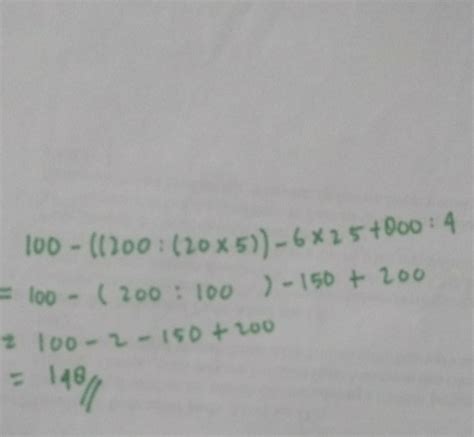 100 - ((200 : (20 x 5)) - 6 x 25 + 800 : 4
= 100 - ( 200 : 100 ) - 150 + 200
= 100 - 2 - 150 + 200
= 148 //